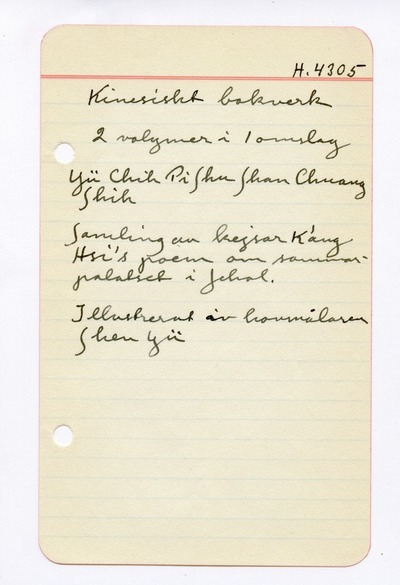 H.4305
Kinesiskt bokverk
2 volymer i 1 omslag
Yü Chih Pi Shu Shan Chuang
Shih
Samling av kejsar K'ang
Hsi's poem om sommar-
palatset i Jehol.
Illustrerat av hovmålaren
Shen Yü